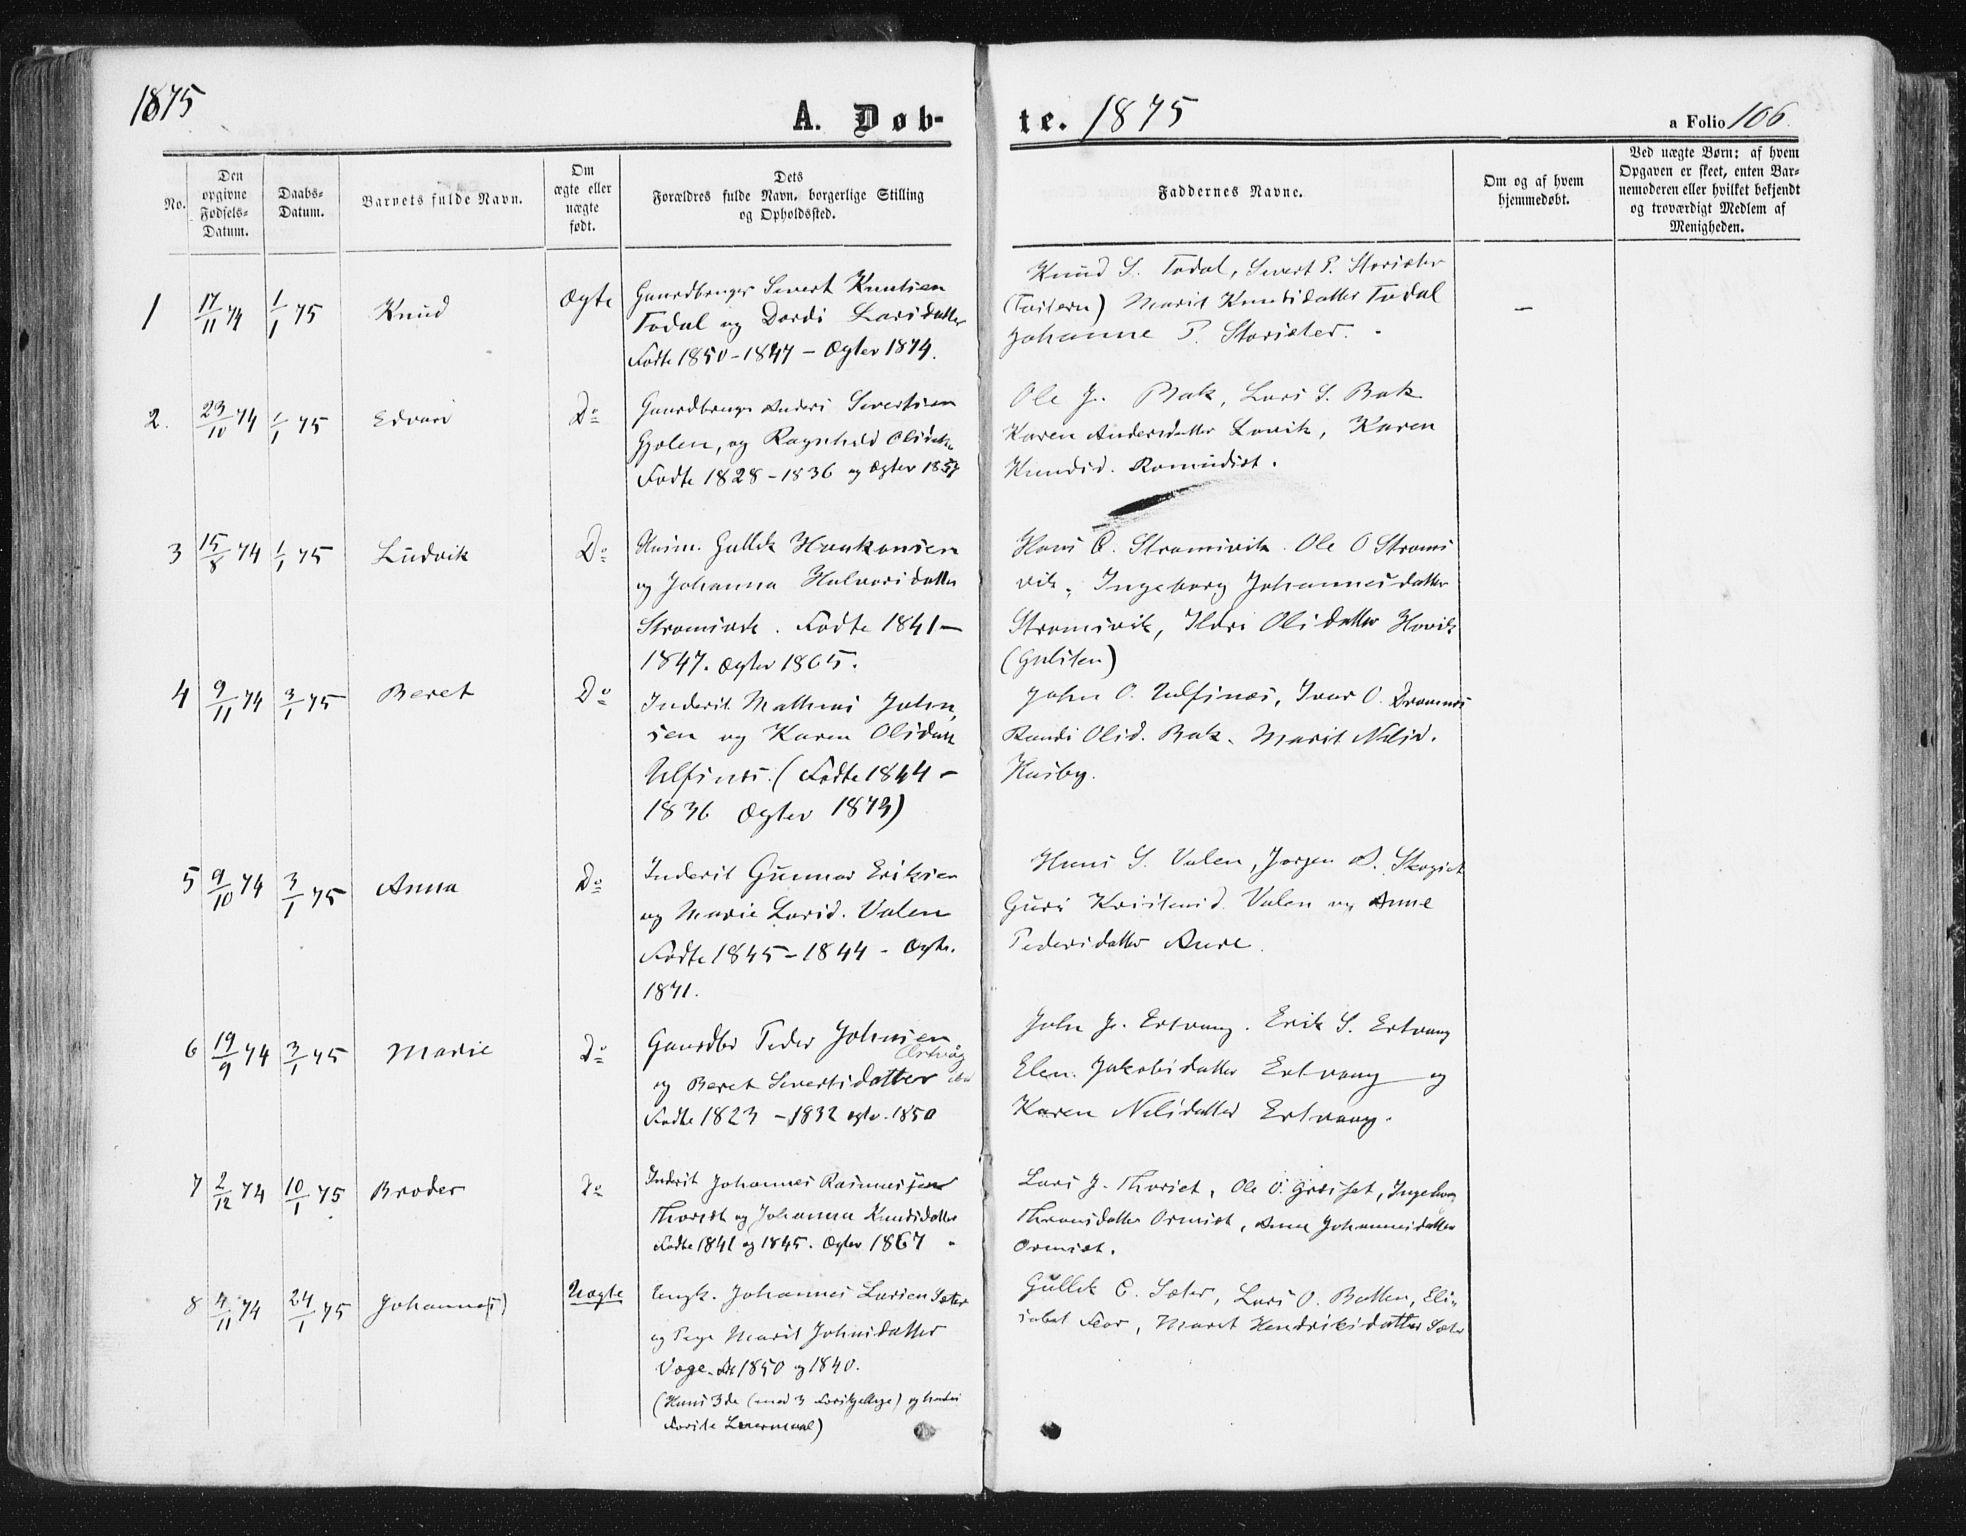 1875
A. Døb-
te. 1875
a Folio 106.
No.
Den opgivne Fødsels-Datum.
Daabs-Datum.
Barnets fulde Navn.
Om ægte eller uægte født.
Dets Forældres fulde Navn, borgerlige Stilling og Opholdssted.
Faddernes Navne.
Om og af hvem hjemmedøbt.
Ved uægte Børn: af hvem Opgaven er skeet, enten Bar-nemoderen eller hvilket bekjendt og troværdigt Medlem af Menigheden.
1 17/11 74 1/1 75 Knud Ægte
Gaardbruger Sivert Knutsen
Todal og Dordi Larsdatter
Fødte 1850 - 1847 - Ægtev 1874.
Knud S. Todal, Sivert P. Storisæter
Marit Knutsdatter Todal
Johanne P. Storisæter.
-
2. 23/10 74 1/1 75 Edvard Do
Gaardbruger Anders Sivertsen
Gjølen, og Ragnhild Olsdatr
Fødte 1828 - 1836 og Ægtev 1857
Ole J. Bak, Lars S. Bak
Karen Andersdatter Lovik, Karen
Knudsd. Romundset.
3 15/8 74 1/1 75 Ludvik Do
Husm. Gullik Haakonsen
og Johanna Halvorsdatter
Strømsvik. Fødte 1841 -
1847. Ægtev 1865.
Hans O. Strømsvik. Ole O Strøms
vik, Ingeborg Johannesdatter
Strømsvik, Olsdatter Hovik
4 9/11 74 3/1 75 Beret Do
Inderst Mathias John,
sen og Karen Olsdatt
Ulfsnes. (Fødte 1844 -
1836 Ægtev 1873)
John O. Ulfsnæs, Ivar O. Dromnes
Randi Olsd. Bak. Marit Nilsd.
Husby.
5 9/10 74 3/1 75 Anna Do
Inderst Gunnar Eriksen
og Marie Larsd. Valen
Fødte 1845 - 1844 - Ægte.
1871.
Hans S. Valen, Jørgen A. Skogset
Guri Kristensd. Valen og Anne
Pedersdatter Aure.
6 19/9 74 3/1 75 Marie Do
Gaardbr Peder Johnsen
Ertvåg
og Beret Sivertsdatter
Fødte 1823 - 1832 ægtv. 1850
John J. Ertvaag. Erik S. Ertvaag
Elen Jakobsdatter Ertvaag og
Karen Nilsdatter Ertvaag.
7 2/12 74 10/1 75 Broder Do
Inderst Johannes Rasmussen
Thorset og Johanna Knudsdatter
Fødte 1841 og 1845. Ægtev 1867
Lars J. Thorset, Ole O. Grøsset, Ingebor
Thronsdatter Ormset, Anne Johannesdatter
Ormset.
8 4/11 74 24/1 75 Johanne(s) Uægte
Ungk. Johannes Larsen Sæter
og Pige Marit Johnsdatter
Vaage. Fdt 1850 og 1840.
(Hans 3de (med 3 Forskjellige) og hendes
Første Leiermaal)
Gullik E. Sæter, Lars O. Botten, Eli-
sabet Flor, Maret Hendriksdatter Sæter